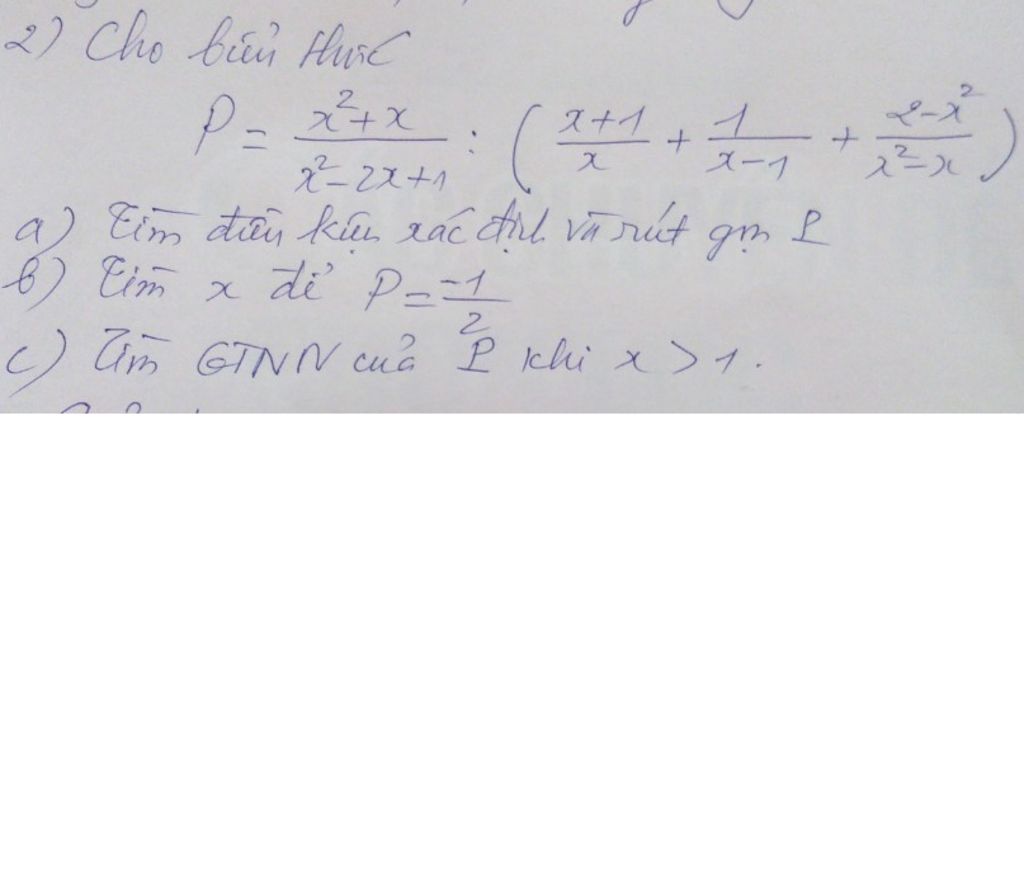 2) Cho biểu thức
P = \frac{x^2+x}{x^2-2x+1} : \left( \frac{x+1}{x} + \frac{1}{x-1} + \frac{2-x^2}{x^2-x} \right)
a) Tìm điều kiện xác định và rút gọn P
b) Tìm x để P = \frac{-1}{2}
c) Tìm GTNN của P khi x > 1.